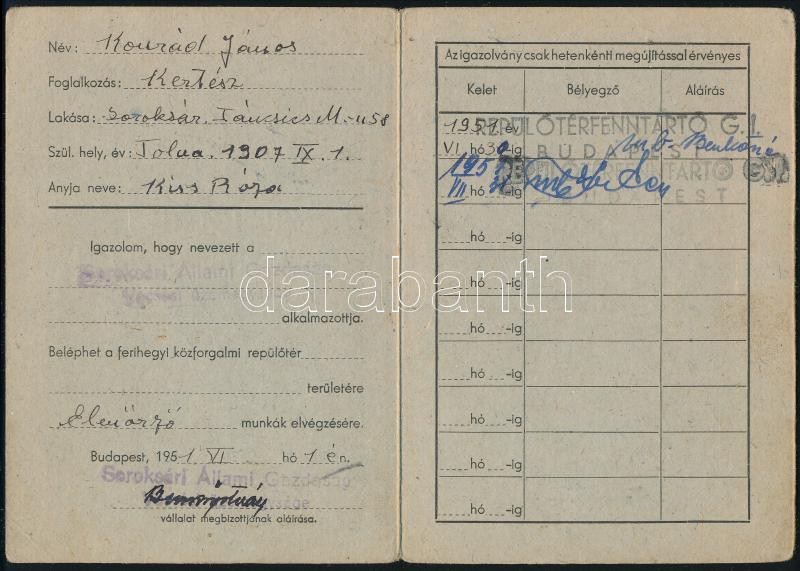 Név: Konrád János
Foglalkozás: Kertész
Lakása: Soroksár, Táncsics M-u 58
Szül. hely, év: Tolna. 1907 IX. 1.
Anyja neve: Kiss Róza
Igazolom, hogy nevezett a
Soroksári Állami Gazdaság
alkalmazottja.
Beléphet a ferihegyi közforgalmi repülőtér
területére
Ellenőrző munkák elvégzésére.
Budapest, 1951 VI hó 1 én.
Soroksári Állami Gazdaság
vállalat megbizottjának aláírása.
Az igazolvány csak hetenkénti megújítással érvényes
Kelet Bélyegző Aláírás
1951 év
REPÜLŐTÉRFENNTARTÓ G. I.
VI. hó 30-ig
BUDAPEST
1951
REPÜLŐTÉRFENNTARTÓ
VII hó 31-ig
BUDAPEST
hó -ig
hó -ig
hó -ig
hó -ig
hó -ig
hó -ig
hó -ig
darabanth